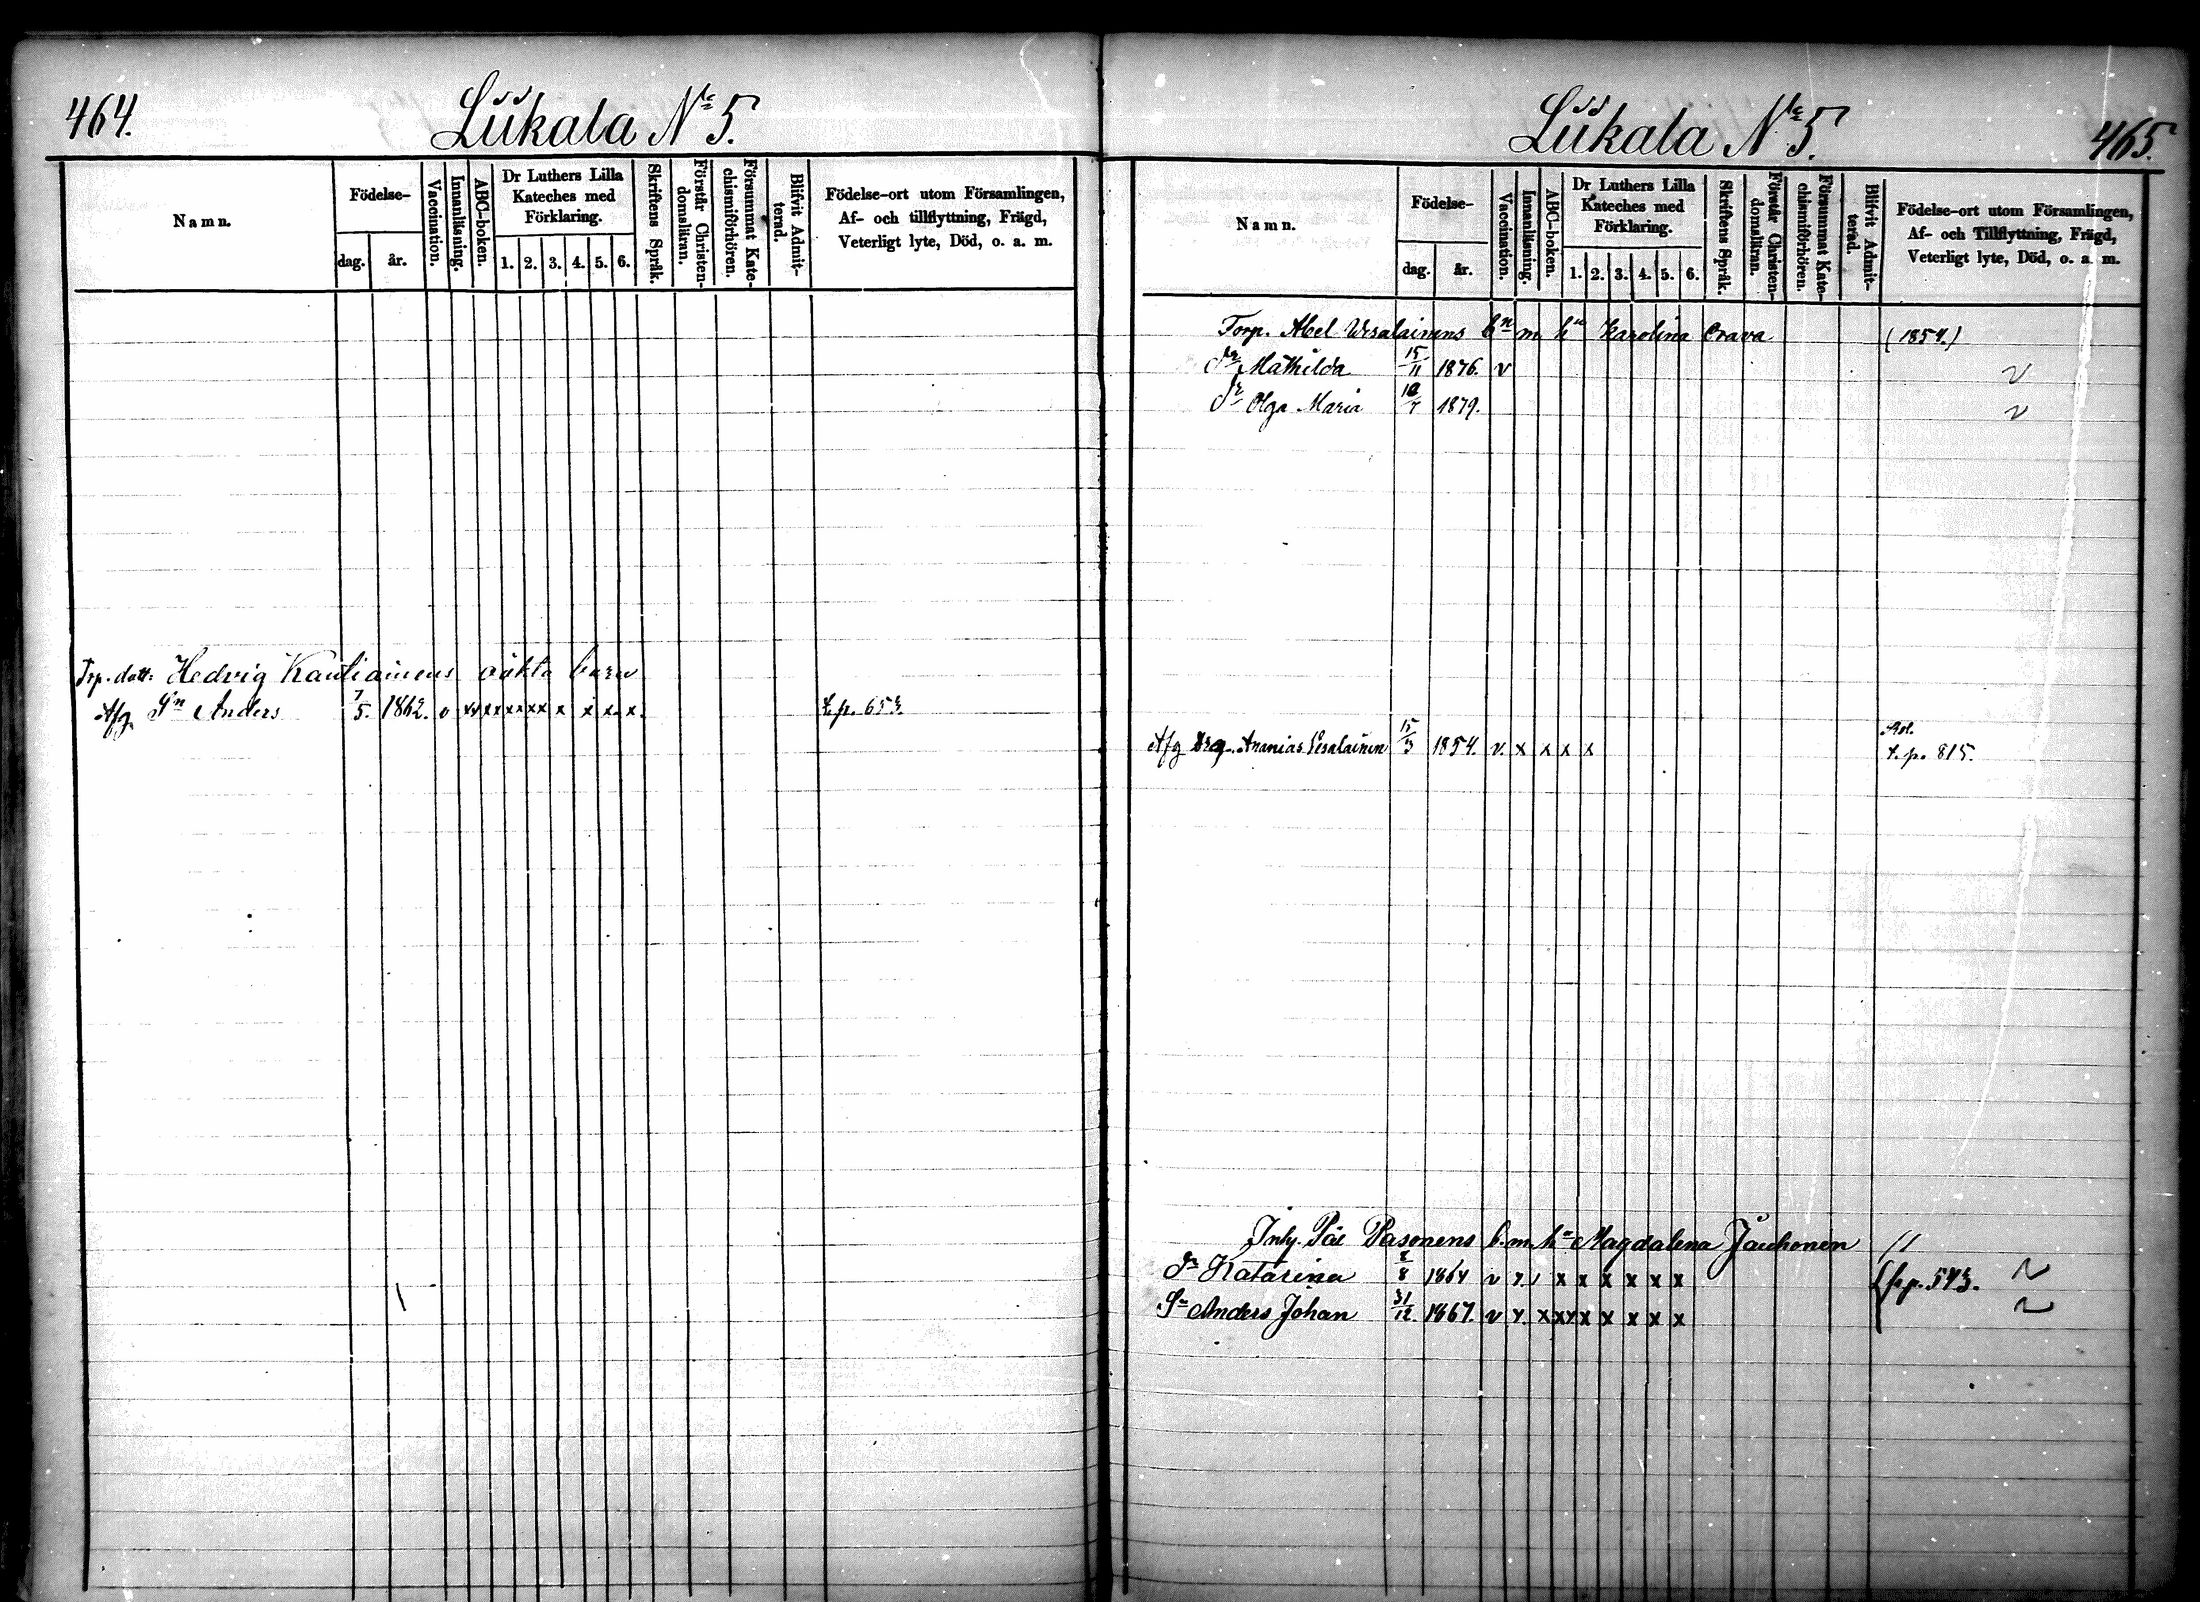 464.
Liikala № 5.
Namn.
Födelse-
dag.
år.
Vaccination.
Innanläsning.
ABC-boken.
Dr Luthers Lilla
Kateches med
Förklaring.
1. 2. 3. 4. 5. 6.
Skriftens Språk.
Förstår Christen-
domsläran.
Försummat Kate-
chismiförhören.
Blifvit Admit-
terad.
Födelse-ort utom Församlingen,
Af- och tillflyttning, Frägd,
Veterligt lyte, Död, o. a. m.
Trp. dott: Hedvig Kautiainens oäkta barn
Afg. Sn Anders 7/5. 1862. v xx xx xx xx x x x x. t.p. 653.
Liikala № 5.
465.
Namn.
Födelse-
dag.
år.
Vaccination.
Innanläsning.
ABC-boken.
Dr Luthers Lilla
Kateches med
Förklaring.
1. 2. 3. 4. 5. 6.
Skriftens Språk.
Förstår Christen-
domsläran.
Försummat Kate-
chismiförhören.
Blifvit Admit-
terad.
Födelse-ort utom Församlingen,
Af- och Tillflyttning, Frägd,
Veterligt lyte, Död, o. a. m.
Torp. Abel Vesalainens bn m hu Karolina Orava (1854.)
Dr Mathilda 15/11 1876. v
Dr Olga Maria 1879.
Afg Ananias Vesalainen 15/3 1854. v. x x x x t.p. 815.
Inh. Pål Pasonens b. m. hu Magdalena Jauhonen
Dr Katarina 1864 v x x x x x x x fr p. 543.
Sn Anders Johan 31/12. 1867. v x. x xx x x x x x